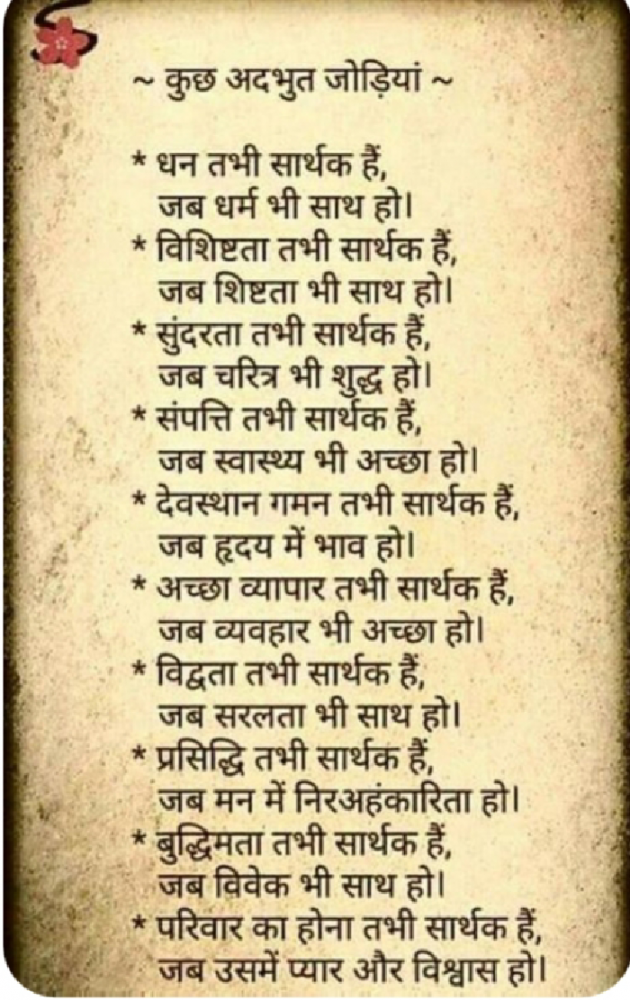 ~ कुछ अदभुत जोड़ियां ~
* धन तभी सार्थक हैं,
जब धर्म भी साथ हो।
* विशिष्टता तभी सार्थक हैं,
जब शिष्टता भी साथ हो।
* सुंदरता तभी सार्थक हैं,
जब चरित्र भी शुद्ध हो।
* संपत्ति तभी सार्थक हैं,
जब स्वास्थ्य भी अच्छा हो।
* देवस्थान गमन तभी सार्थक हैं,
जब हृदय में भाव हो।
* अच्छा व्यापार तभी सार्थक हैं,
जब व्यवहार भी अच्छा हो।
* विद्वता तभी सार्थक हैं,
जब सरलता भी साथ हो।
* प्रसिद्धि तभी सार्थक हैं,
जब मन में निरअहंकारिता हो।
* बुद्धिमता तभी सार्थक हैं,
जब विवेक भी साथ हो।
* परिवार का होना तभी सार्थक हैं,
जब उसमें प्यार और विश्वास हो।